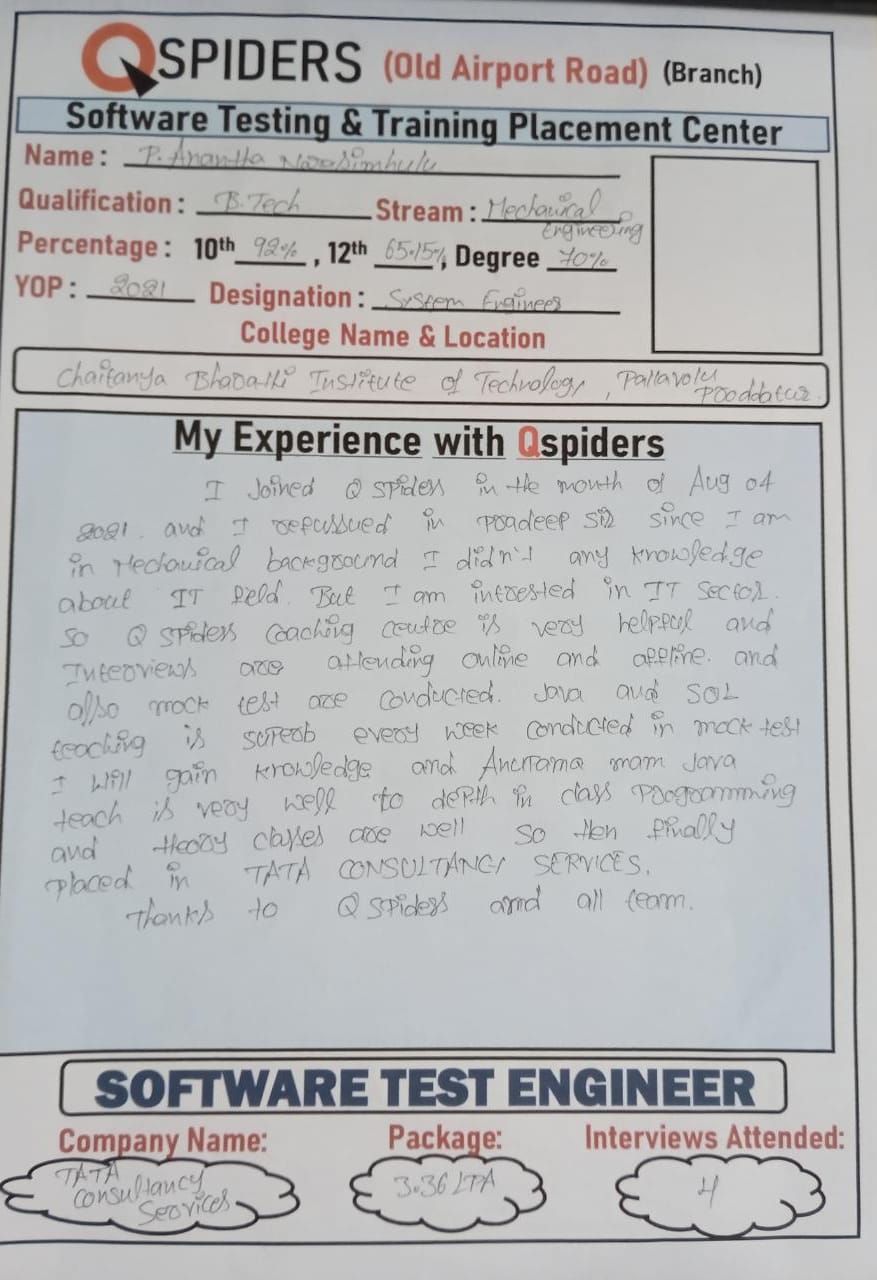 QSPIDERS (Old Airport Road) (Branch)
Software Testing & Training Placement Center
Name : P. Anantha Narasimhulu
Qualification : B.Tech Stream : Mechanical Engineering
Percentage : 10th 92% , 12th 65.15%, Degree 70%
YOP : 2021 Designation : System Engineer
College Name & Location
Chaitanya Bharathi Institute of Technology, Pallavolu
Prooddatur.
My Experience with Qspiders
I Joined Q spiders in the month of Aug 04
2021. and I in pradeep sir since I am
in Mechanical background I didn't any knowledge
about IT field. But I am intrested in IT sector.
so Q spiders coaching centre is very helpful and
Interviews are attending online and offline. and
also mock test are conducted. Java and SQL
teaching is every week conducted in mock test
I will gain knowledge and mam Java
teach is very well to depth in class programming
and theory classes are well so then finally
placed in TATA CONSULTANCY SERVICES.
Thanks to Q spiders and all team.
SOFTWARE TEST ENGINEER
Company Name: Package: Interviews Attended:
TATA
Consultancy
Services
3.36 LPA
4